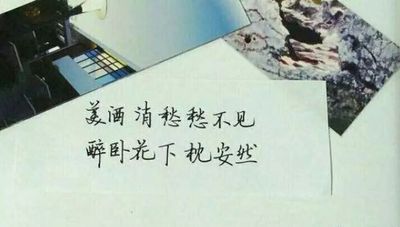 美酒消愁愁不见
醉卧花下枕安然